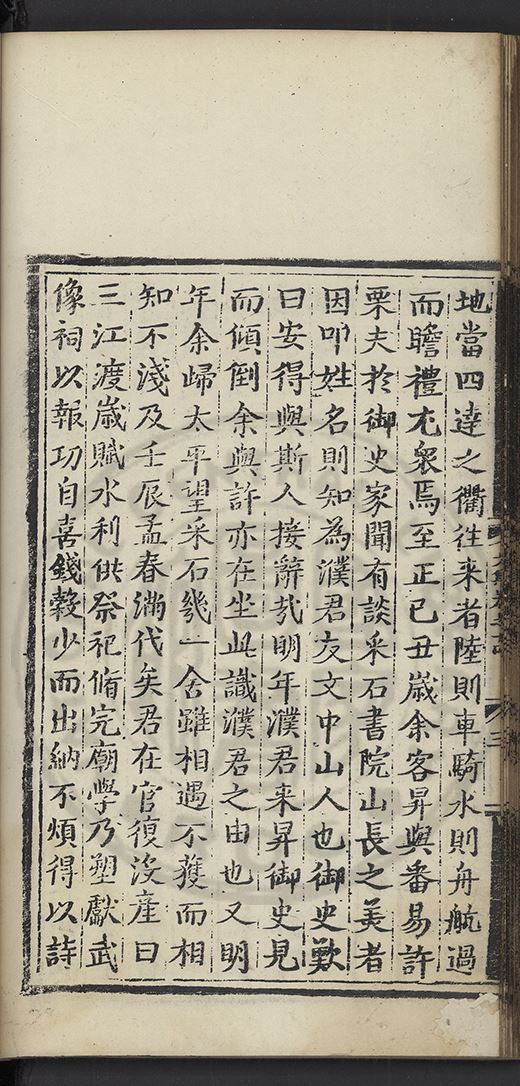 地當四達之衢徃来者陸則車騎水則舟航過
而瞻禮尤衆焉至正己丑嵗余客昇與番昜許
栗夫扵御史家聞有談采石書院山長之美者
因叩姓名則知為濮君友文中山人也御史歎
曰安得與斯人接辭㢤明年濮君来昇御史見
而傾倒余與許亦在坐此識濮君之由也又明
年余歸太平望采石幾一舍雖相遇不獲而相
知不淺及壬辰孟春滿代矣君在官復沒産曰
三江渡嵗賦水利供祭祀脩完廟學乃塑獻武
像祠以報功自喜錢糓少而出納不煩得以詩
三